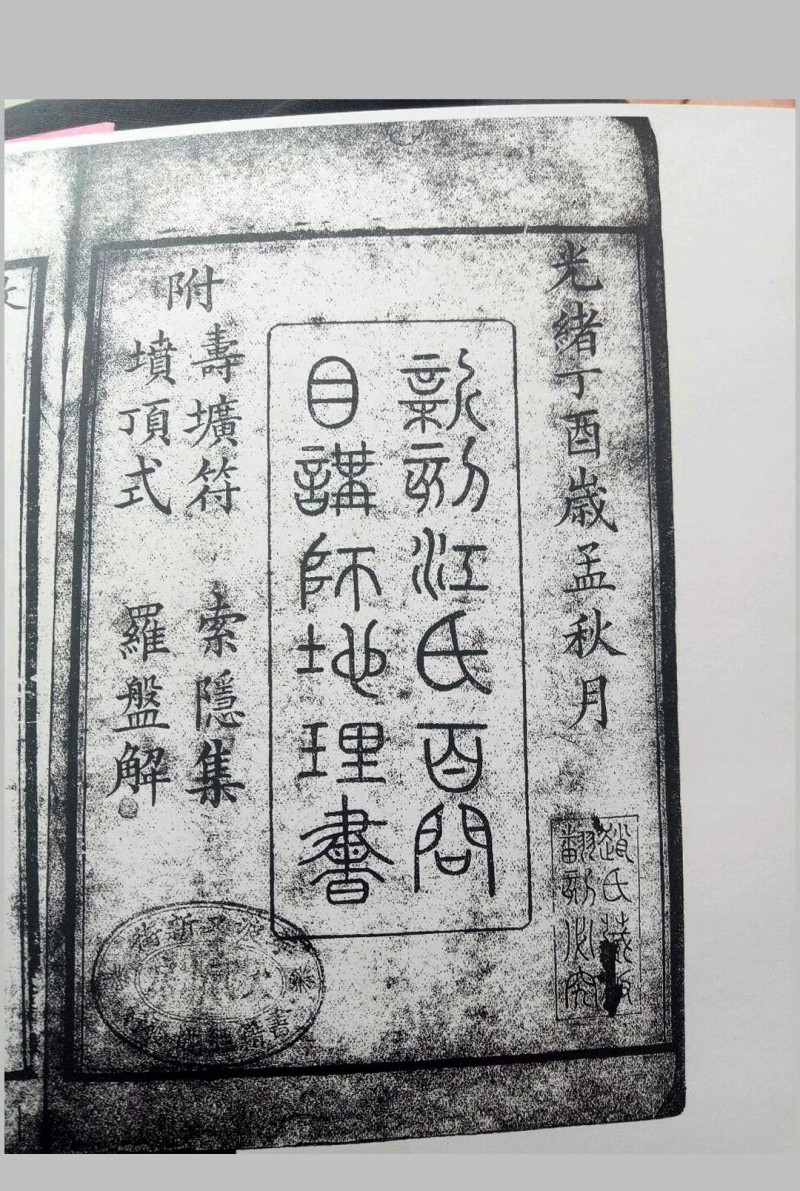 光緒丁酉歲孟秋月
新刻江氏百問
目講師地理書
附
壽壙符 索隱集
墳頂式 羅盤解
趙氏藏板
翻刻必究